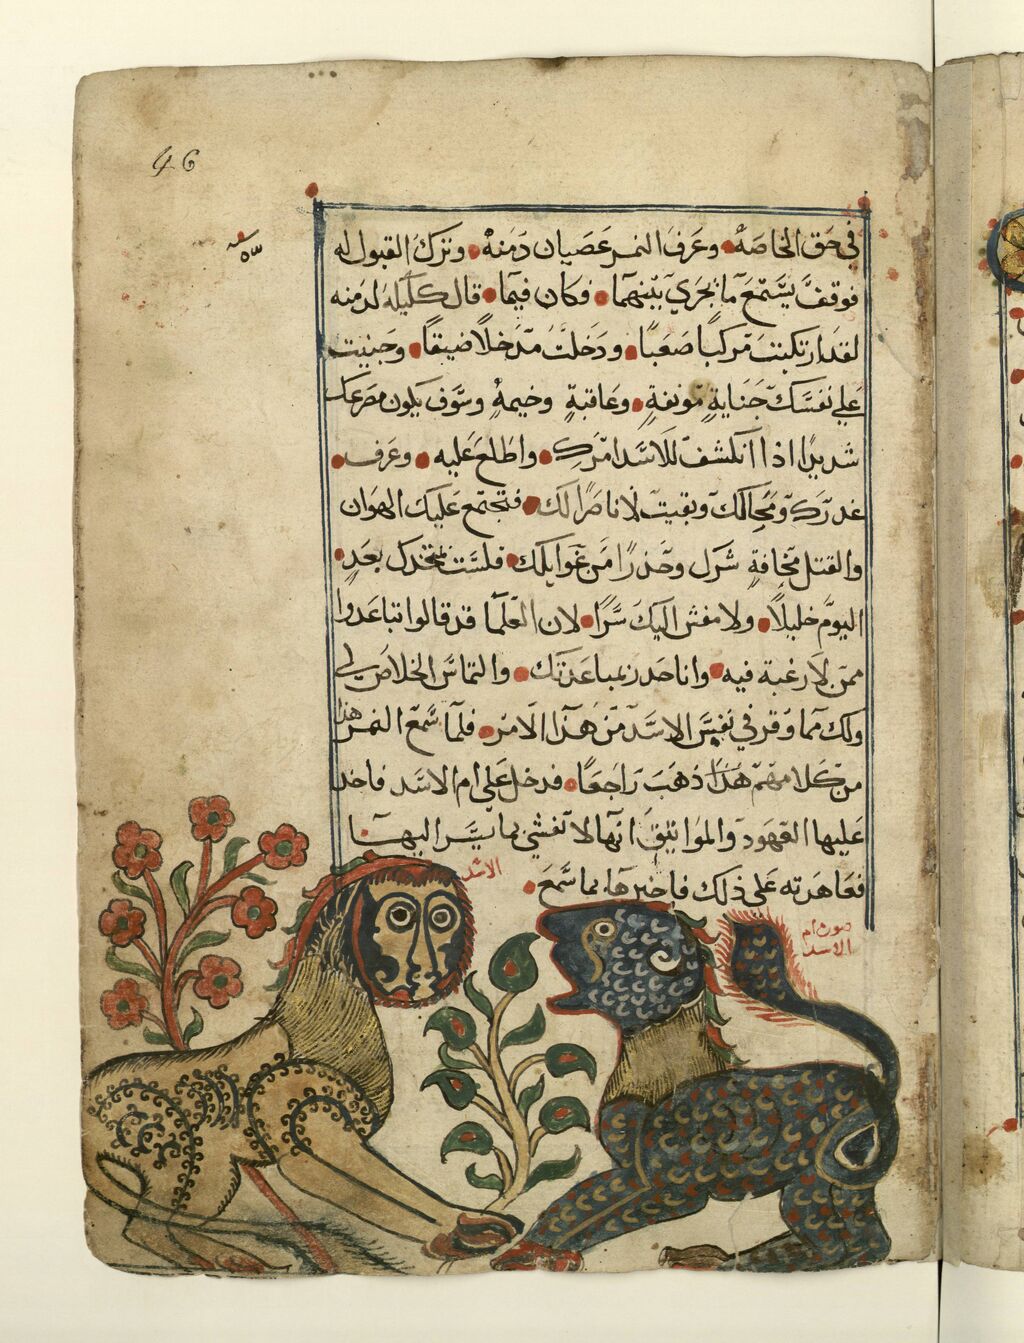 46
في حق الخاصة وعرف النمر عصيان دمنة وترك القبول له
فوقف يستمع ما يجري بينهما وكان فيما قال كليلة لدمنه
لقد ارتكبت مركبا صعبا ودخلت مدخلا ضيقا وجنيت
علي نفسك جناية موبقة وعاقبة وخيمة وسوف يكون مصرعك
شديدا اذا انكشف للاسد امرك واطلع عليه وعرف
غدرك ومحالك وبقيت لا ناصر لك فتجتمع عليك الهوان
والقتل مخافة شرك وحذرا من غوايلك فلست بمتخدك بعد
اليوم خليلا ولا مفش اليك سرا لان العلما قد قالوا تباعدوا
ممن لا رغبة فيه وانا جدير بمباعدتك والتماس الخلاص لي
ولك مما وقر في نفس الاسد من هذا الامر فلما سمع النمر هذا
من كلامهم هذا ذهب راجعا فدخل علي ام الاسد فاخد
عليها العهود والمواثيق انها لا تفشي بما يسر اليها
فعاهدته على ذلك فاخبرها بما سمع
الاسد
صورة ام
الاسد